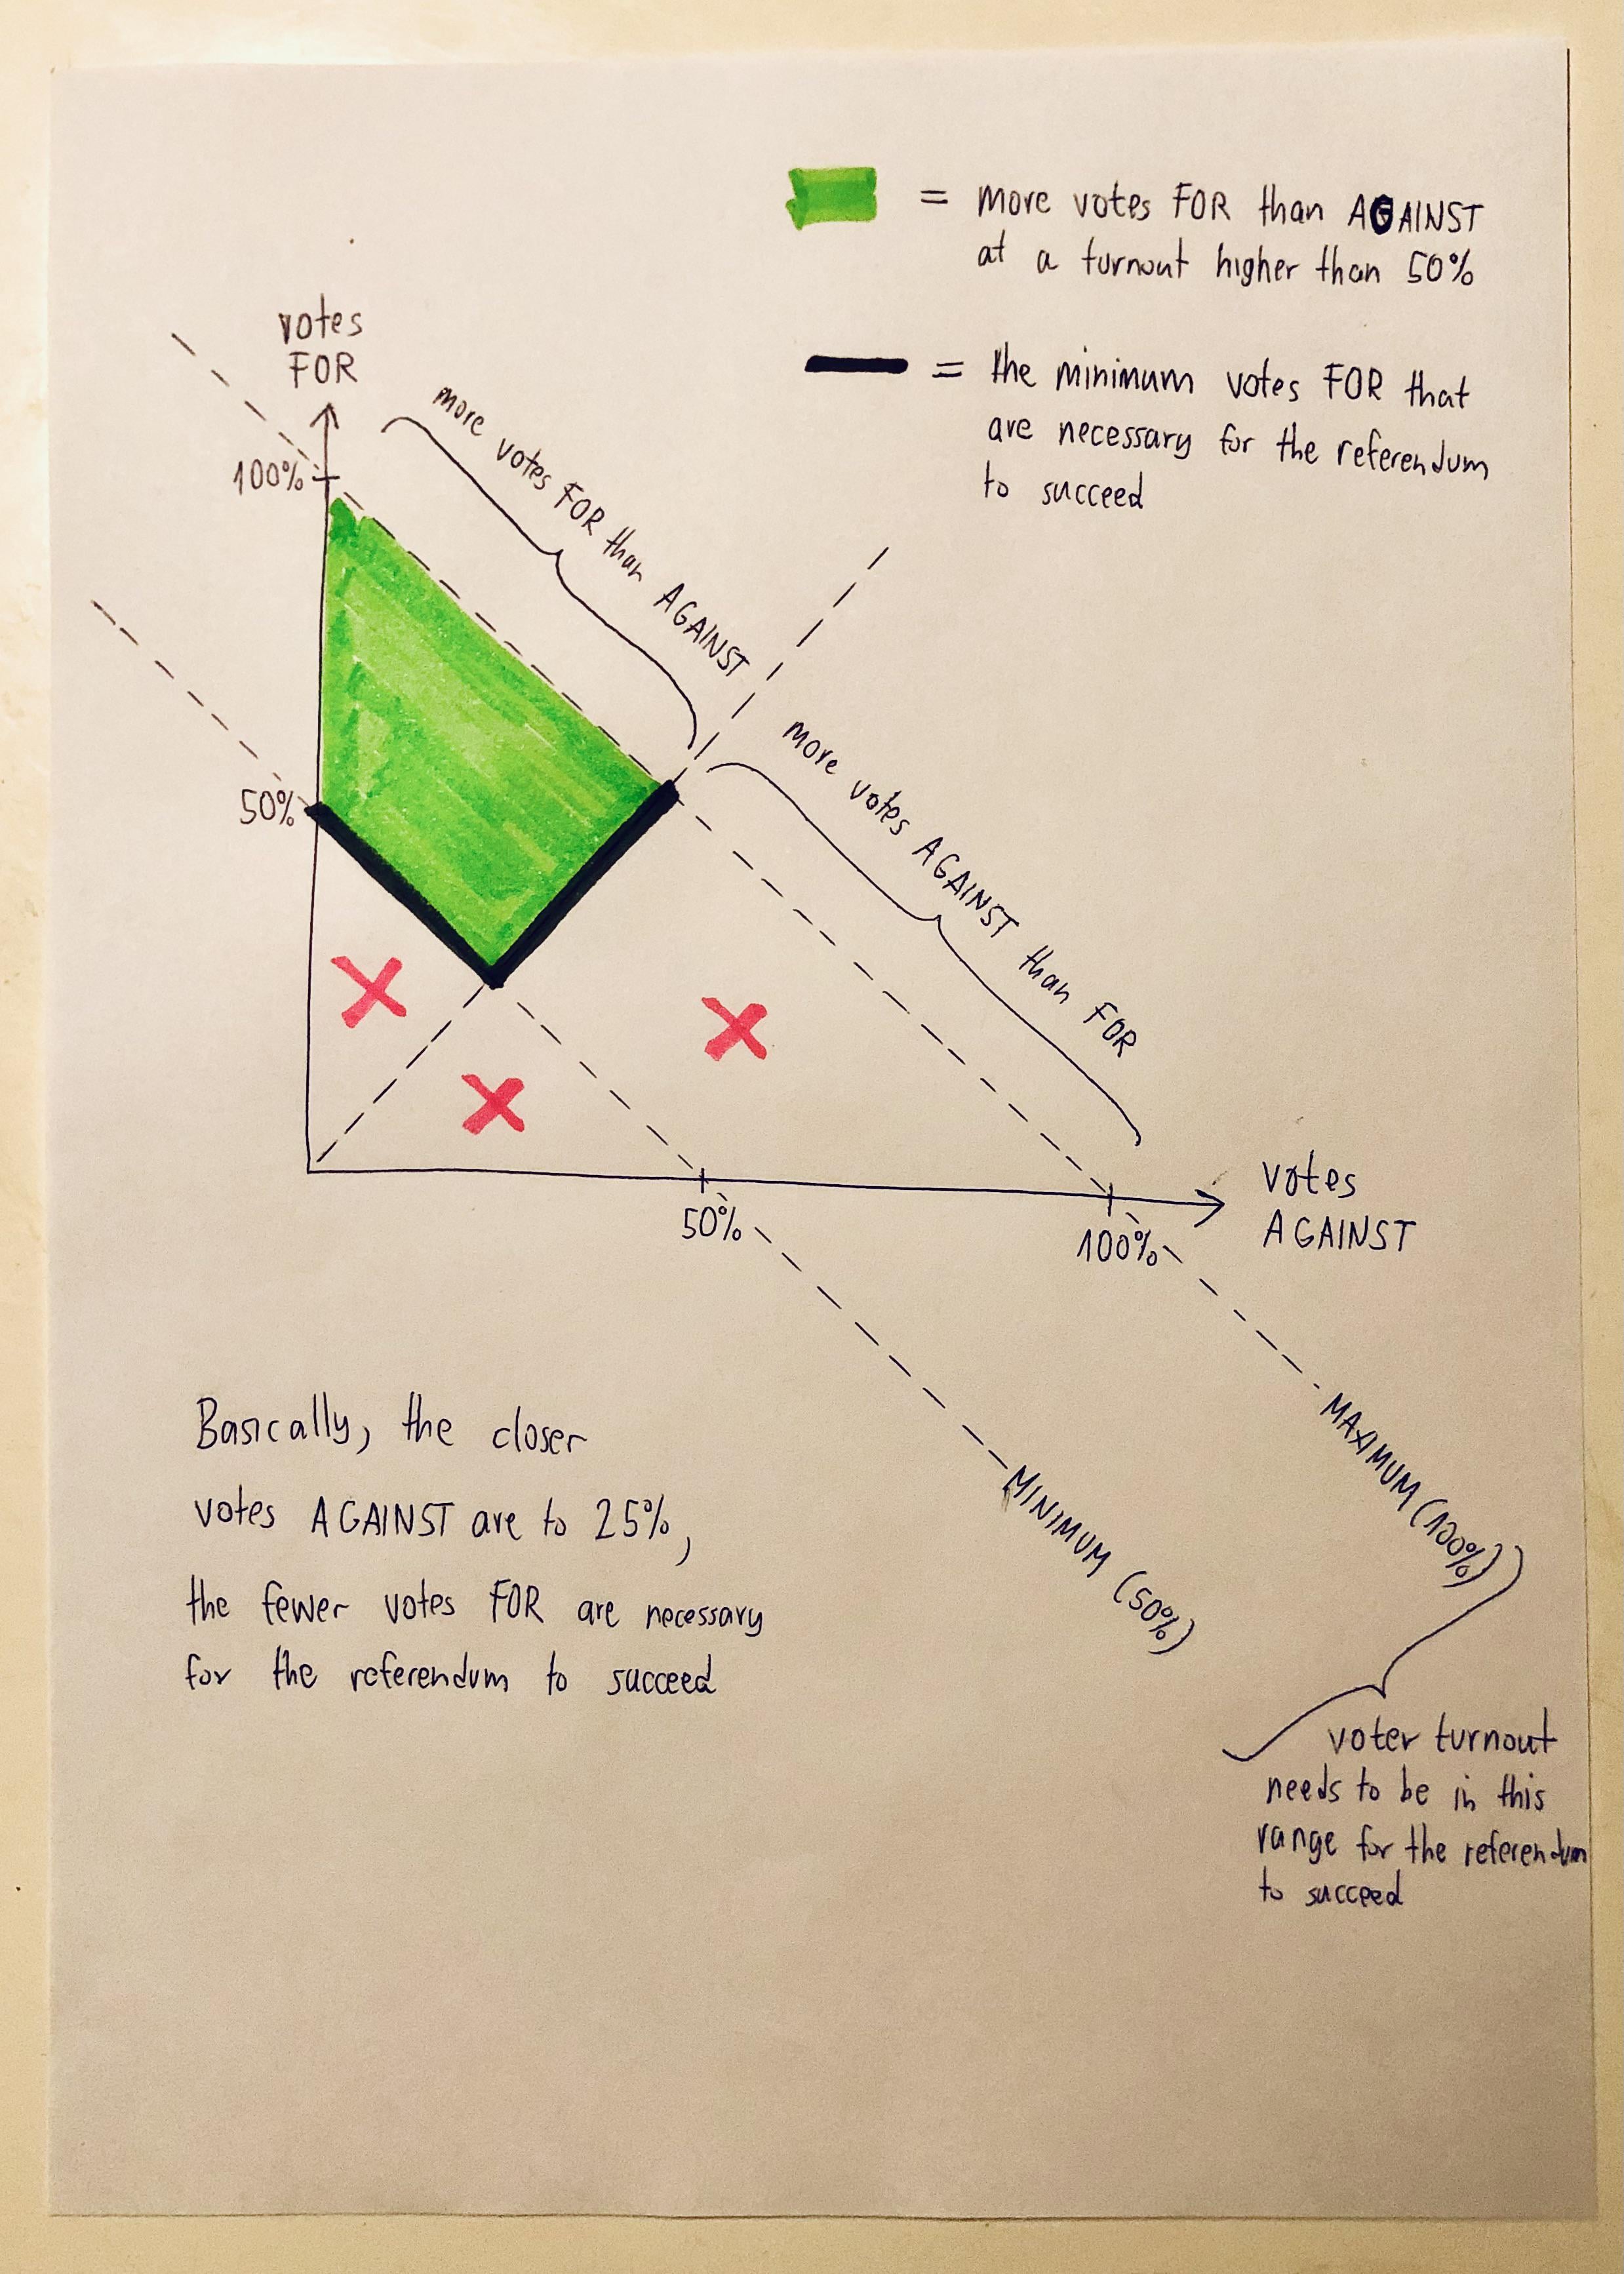 = more votes FOR than AGAINST
at a turnout higher than 50%
= the minimum votes FOR that
are necessary for the referendum
to succeed
votes
FOR
100%
50%
more votes FOR than AGAINST
more votes AGAINST than FOR
50%
100%
votes
AGAINST
MINIMUM (50%)
MAXIMUM (100%)
voter turnout
needs to be in this
range for the referendum
to succeed
Basically, the closer
votes AGAINST are to 25%,
the fewer votes FOR are necessary
for the referendum to succeed